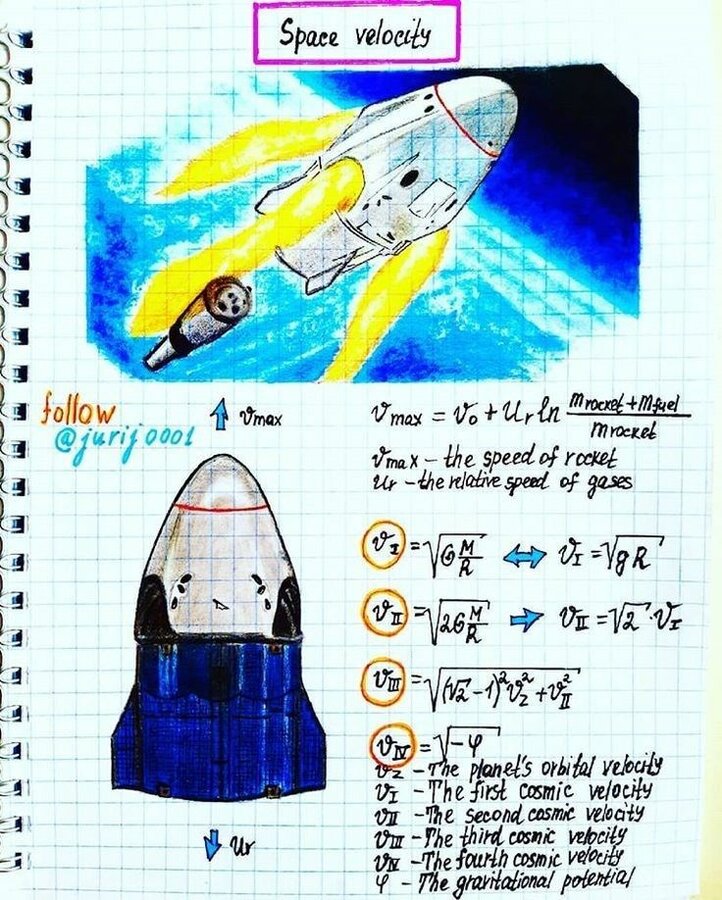 Space velocity
follow
@jurij0001
vmax
v max = v₀ + Ur ln (m rocket + m fuel) / m rocket
vmax - the speed of rocket
Ur - the relative speed of gases
v_I = √(G M/R) ⟷ v_I = √(gR)
v_II = √(2G M/R) → v_II = √2 · v_I
v_III = √((√2 - 1)² v_z² + v_II²)
v_IV = √(-φ)
v_z - The planet's orbital velocity
v_I - The first cosmic velocity
v_II - The second cosmic velocity
v_III - The third cosmic velocity
v_IV - The fourth cosmic velocity
φ - The gravitational potential
Ur